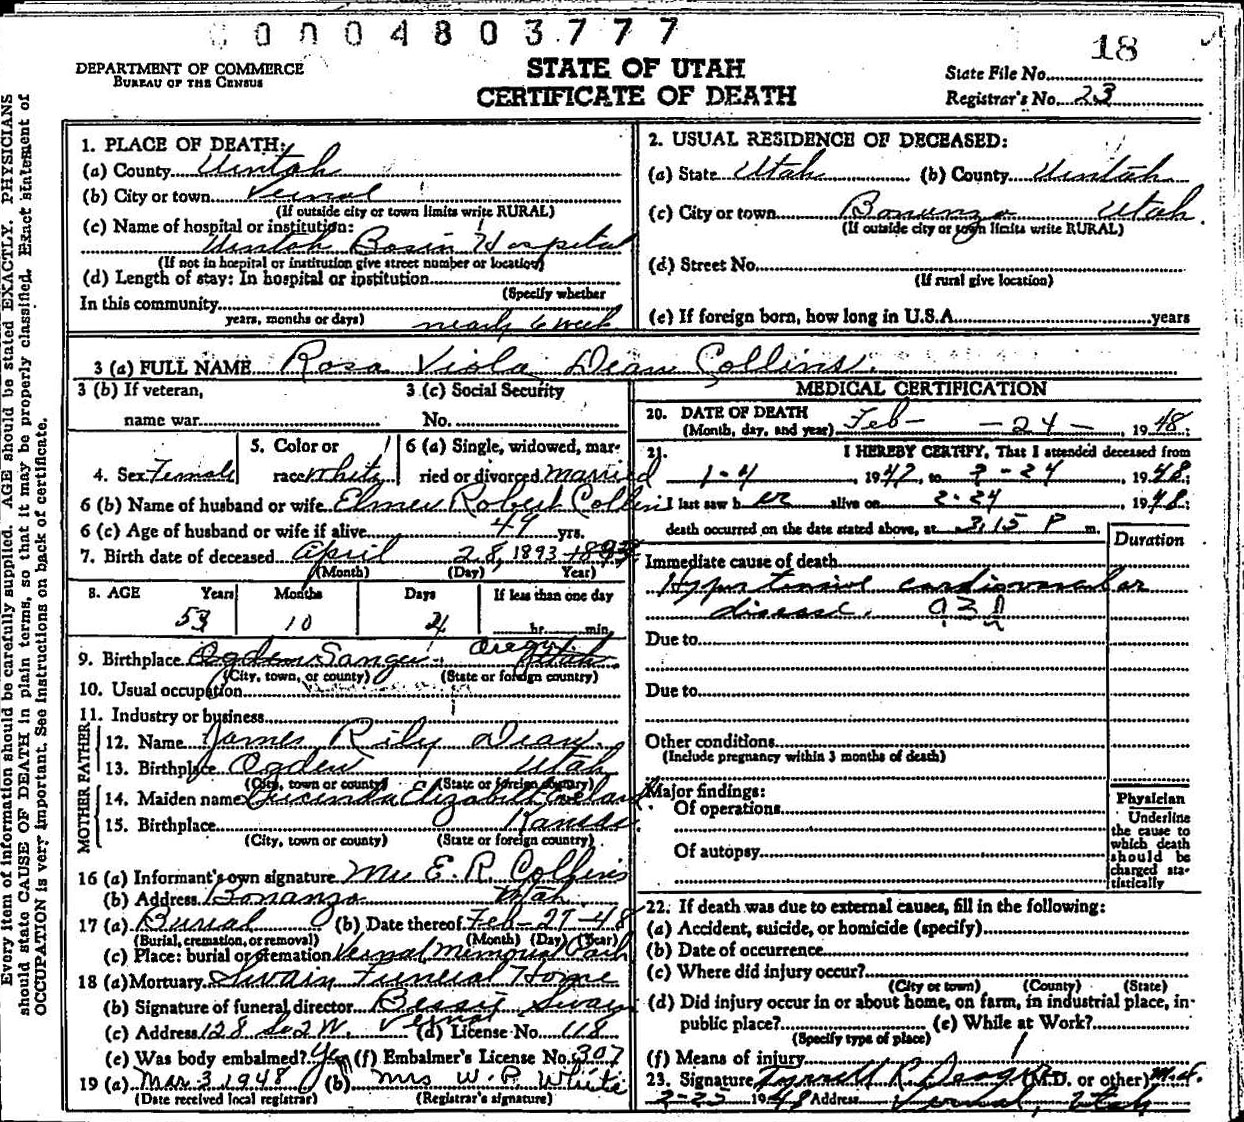 0004803777
18
DEPARTMENT OF COMMERCE
BUREAU OF THE CENSUS
STATE OF UTAH
CERTIFICATE OF DEATH
State File No.
Registrar's No. 23
Every item of information should be carefully supplied. AGE should be stated EXACTLY. PHYSICIANS
should state CAUSE OF DEATH in plain terms, so that it may be properly classified. Exact statement of
OCCUPATION is very important. See instructions on back of certificate.
1. PLACE OF DEATH:
(a) County Uintah
(b) City or town Vernal
(If outside city or town limits write RURAL)
(c) Name of hospital or institution:
Uintah Basin Hospital
(If not in hospital or institution give street number or location)
(d) Length of stay: In hospital or institution
(Specify whether
In this community
years, months or days) nearly 6 week
2. USUAL RESIDENCE OF DECEASED:
(a) State Utah (b) County Uintah
(c) City or town Bonanza Utah
(If outside city or town limits write RURAL)
(d) Street No.
(If rural give location)
(e) If foreign born, how long in U.S.A. years
3 (a) FULL NAME Rosa Viola Dean Collins
3 (b) If veteran,
name war
3 (c) Social Security
No.
4. Sex Female
5. Color or
race White
6 (a) Single, widowed, mar-
ried or divorced married
6 (b) Name of husband or wife Elmer Robert Collins
6 (c) Age of husband or wife if alive 49 yrs.
7. Birth date of deceased April 28, 1893
(Month) (Day) Year)
8. AGE Years Months Days If less than one day
53 10 hr. min.
9. Birthplace Ogden Utah
(City, town, or county) (State or foreign country)
10. Usual occupation
11. Industry or business
FATHER
12. Name James Rily Dean
13. Birthplace Ogden Utah
(City, town or county) (State or foreign country)
MOTHER
14. Maiden name Elizabeth
15. Birthplace Kansas
(City, town or county) (State or foreign country)
16 (a) Informant's own signature Mrs E. R. Collins
(b) Address Bonanza Utah
17 (a) Burial (b) Date thereof Feb-27-48
(Burial, cremation, or removal) (Month) (Day) (Year)
(c) Place: burial or cremation Vernal Memorial Park
18 (a) Mortuary Swain Funeral Home
(b) Signature of funeral director Bessie Swain
(c) Address 128 So 2 W. Vernal (d) License No. 118
(e) Was body embalmed? Yes (f) Embalmer's License No. 307
19 (a) Mar 3 1948 (b) Mrs W. P. White
(Date received local registrar) (Registrar's signature)
MEDICAL CERTIFICATION
20. DATE OF DEATH
(Month, day, and year) Feb- -24- 1948;
21. I HEREBY CERTIFY, That I attended deceased from
1-4, 1947, to 2-24 1948;
I last saw h er alive on 2-24 1948;
death occurred on the date stated above, at 3:15 P m.
Duration
Immediate cause of death
Hypertensive cardiovascular
disease.
Due to
Due to
Other conditions
(Include pregnancy within 3 months of death)
Major findings:
Of operations
Of autopsy
Physician
Underline
the cause to
which death
should be
charged sta-
tistically
22. If death was due to external causes, fill in the following:
(a) Accident, suicide, or homicide (specify)
(b) Date of occurrence
(c) Where did injury occur?
(City or town) (County) (State)
(d) Did injury occur in or about home, on farm, in industrial place, in
public place? (e) While at Work?
(Specify type of place)
(f) Means of injury
23. Signature (M.D. or other) M.D.
2-25 1948 Address Vernal, Utah